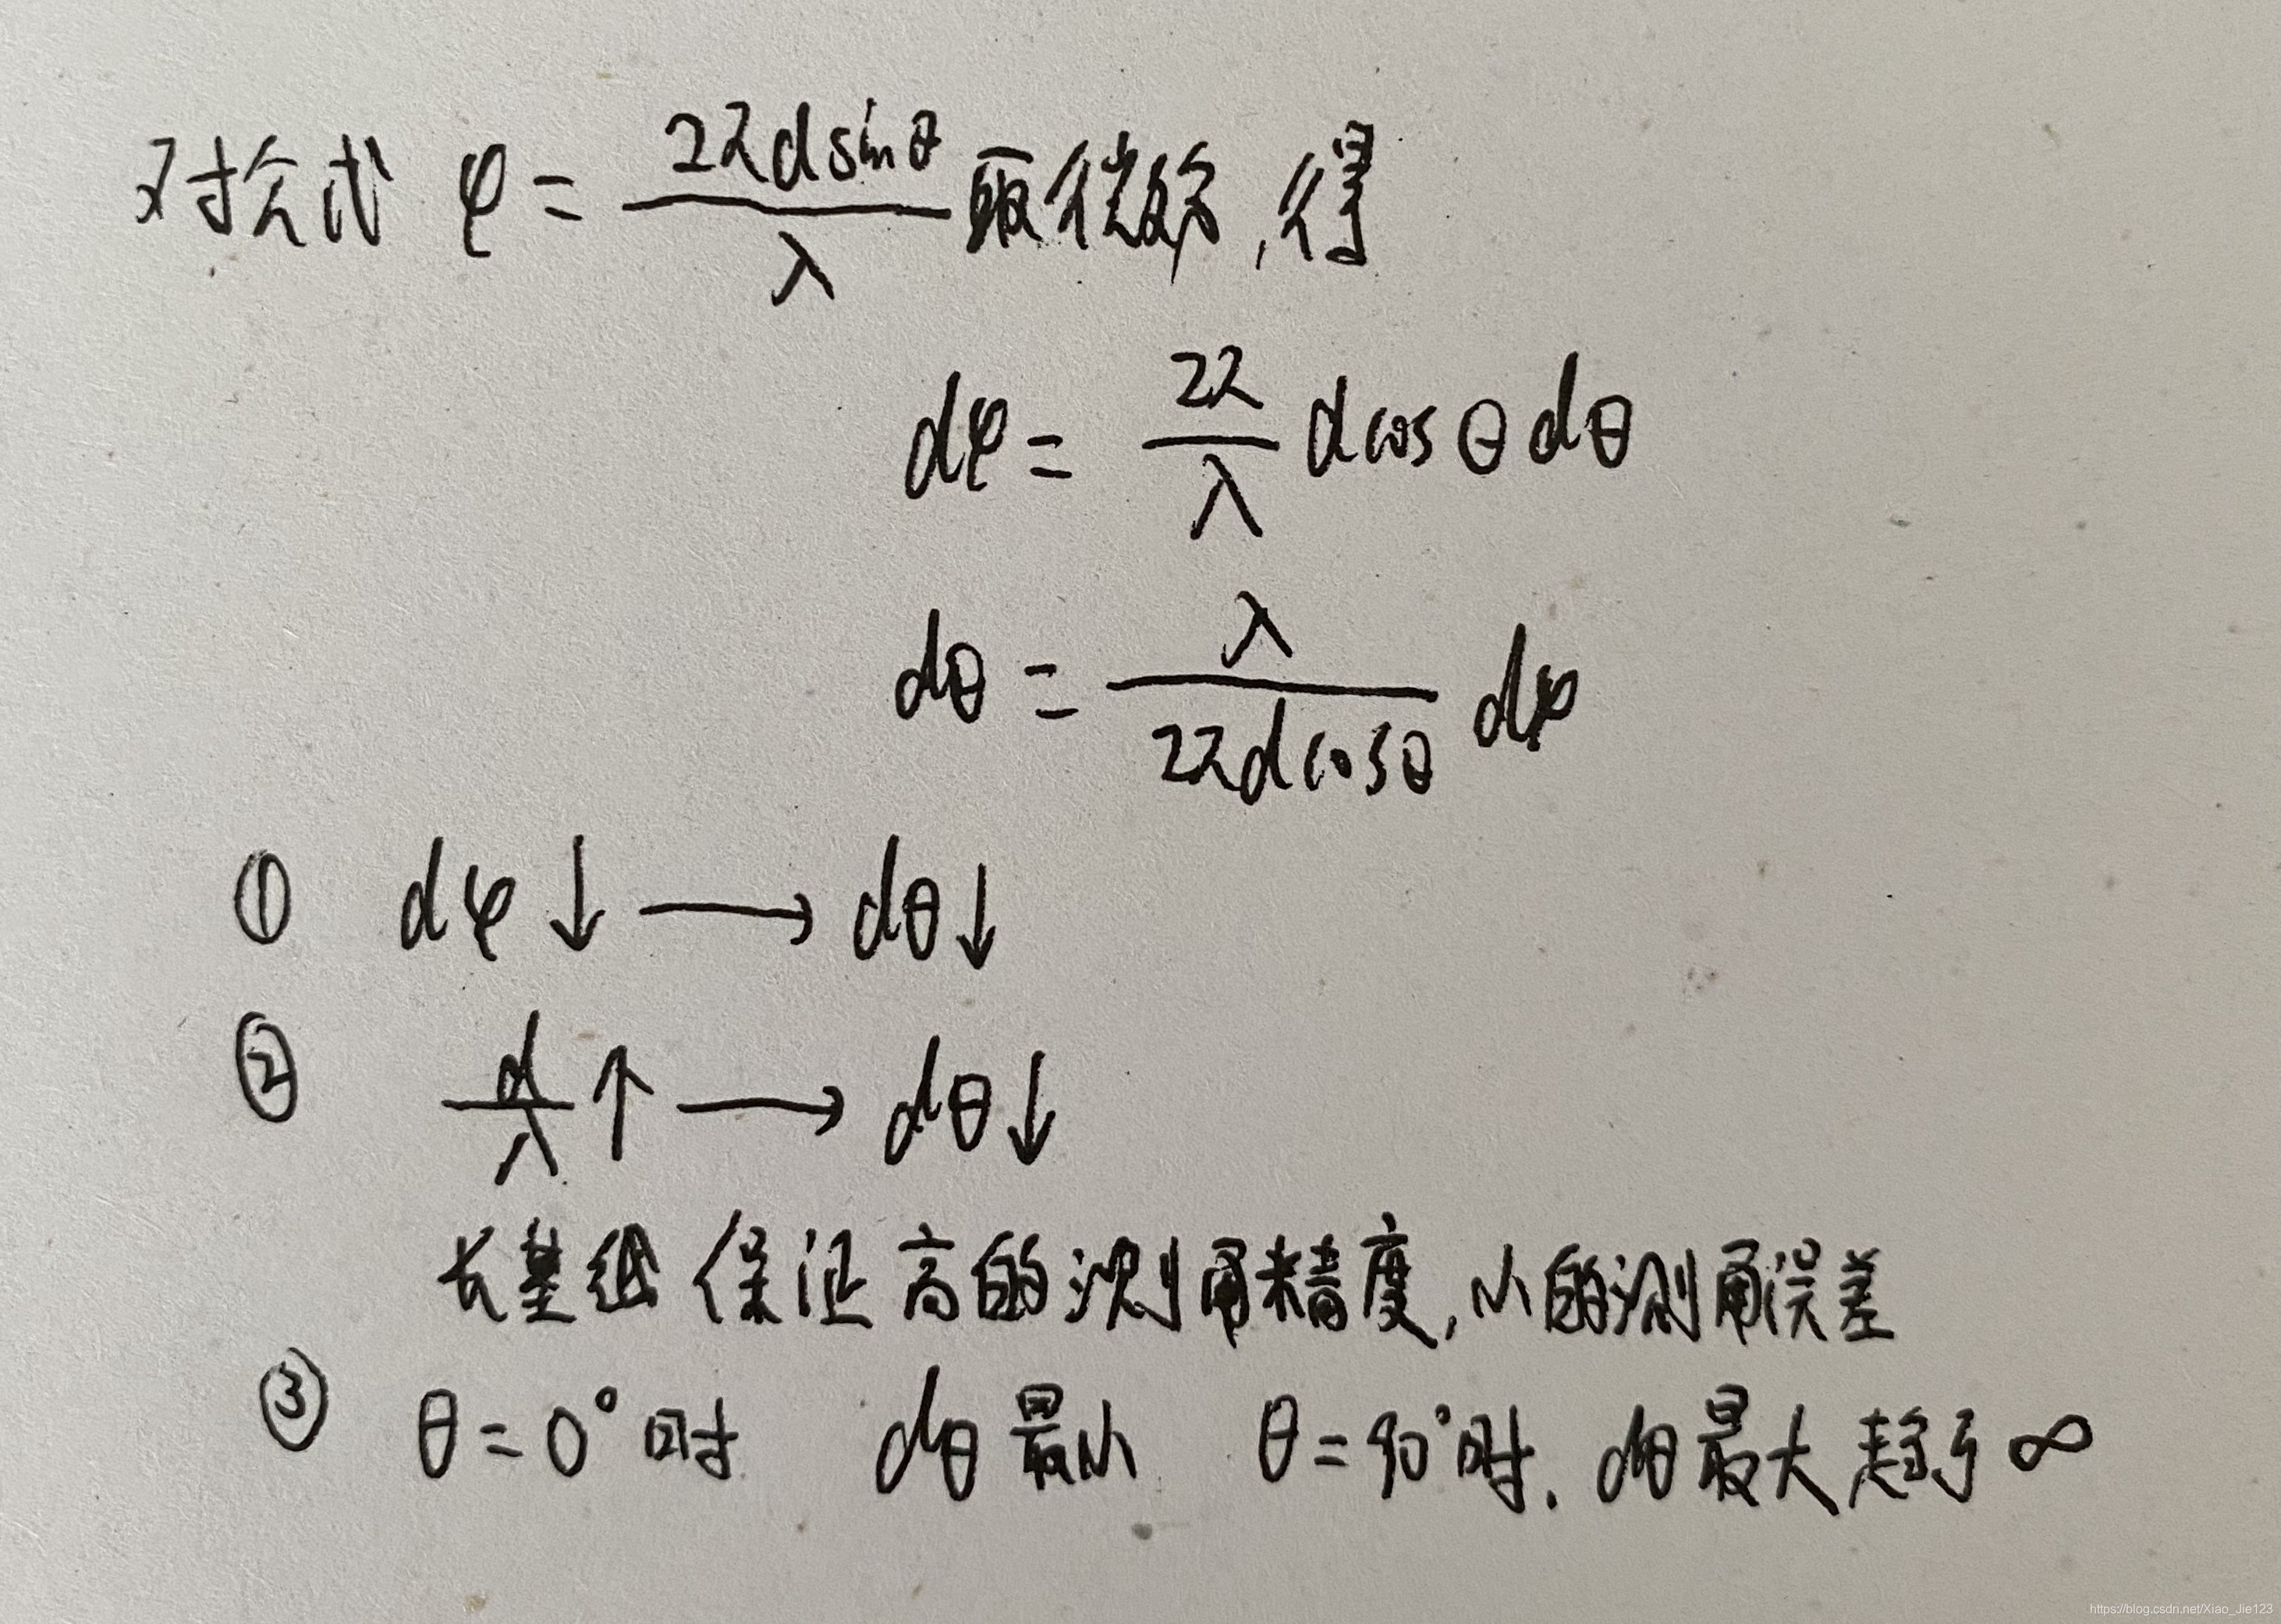 对公式 φ = 2πdsinθ/λ 取微分,得
dφ = 2π/λ dcosθdθ
dθ = λ/2πdcosθ dφ
① dφ↓ → dθ↓
② d/λ↑ → dθ↓
长基线 保证高的测角精度,小的测角误差
③ θ=0°时 dθ最小 θ=90°时. dθ最大趋于∞
https://blog.csdn.net/Xiao_Jie123